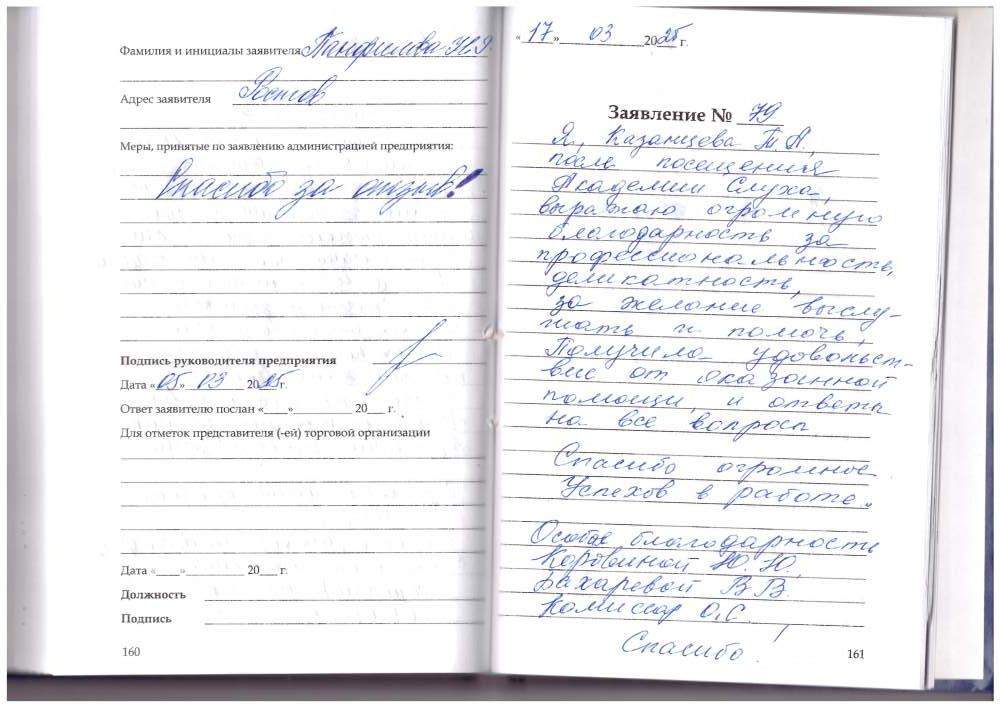 Фамилия и инициалы заявителя Панфилова Н.Я.
Адрес заявителя Ростов
Меры, принятые по заявлению администрацией предприятия:
Спасибо за отзыв!
Подпись руководителя предприятия
Дата «05» 03 2025 г.
Ответ заявителю послан «____» 20___ г.
Для отметок представителя (-ей) торговой организации
Дата «____»__________ 20___ г.
Должность
Подпись
160
«17» 03 2025 г.
Заявление № 79
Я, Казанцева Т.А.,
после посещения
Академии Слуха,
выражаю огромную
благодарность за
профессиональность,
деликатность,
за желание выслу-
шать и помочь,
Получила удовольст-
вие от оказанной
помощи, и ответы
на все вопросы
Спасибо огромное
Успехов в работе..
Особая благодарность
Коровиной Ю.Ю.
Бахаревой В.В.
Комиссар О.С.
Спасибо!
161